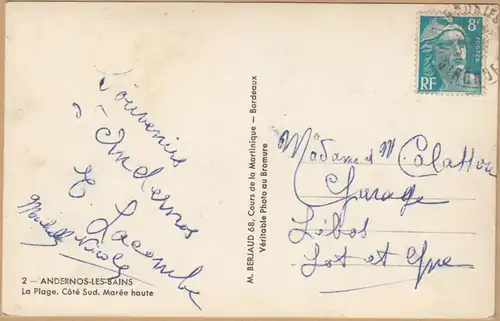 Souvenirs
d'Andernos
E. Lacombe
Nicole
2 — ANDERNOS-LES-BAINS
La Plage. Côté Sud. Marée haute
M. BERJAUD 68, Cours de la Martinique — Bordeaux
Véritable Photo au Bromure
8F
POSTES
RF
GIRONDE
Madame et M
Garage
Libos
Lot et Gne